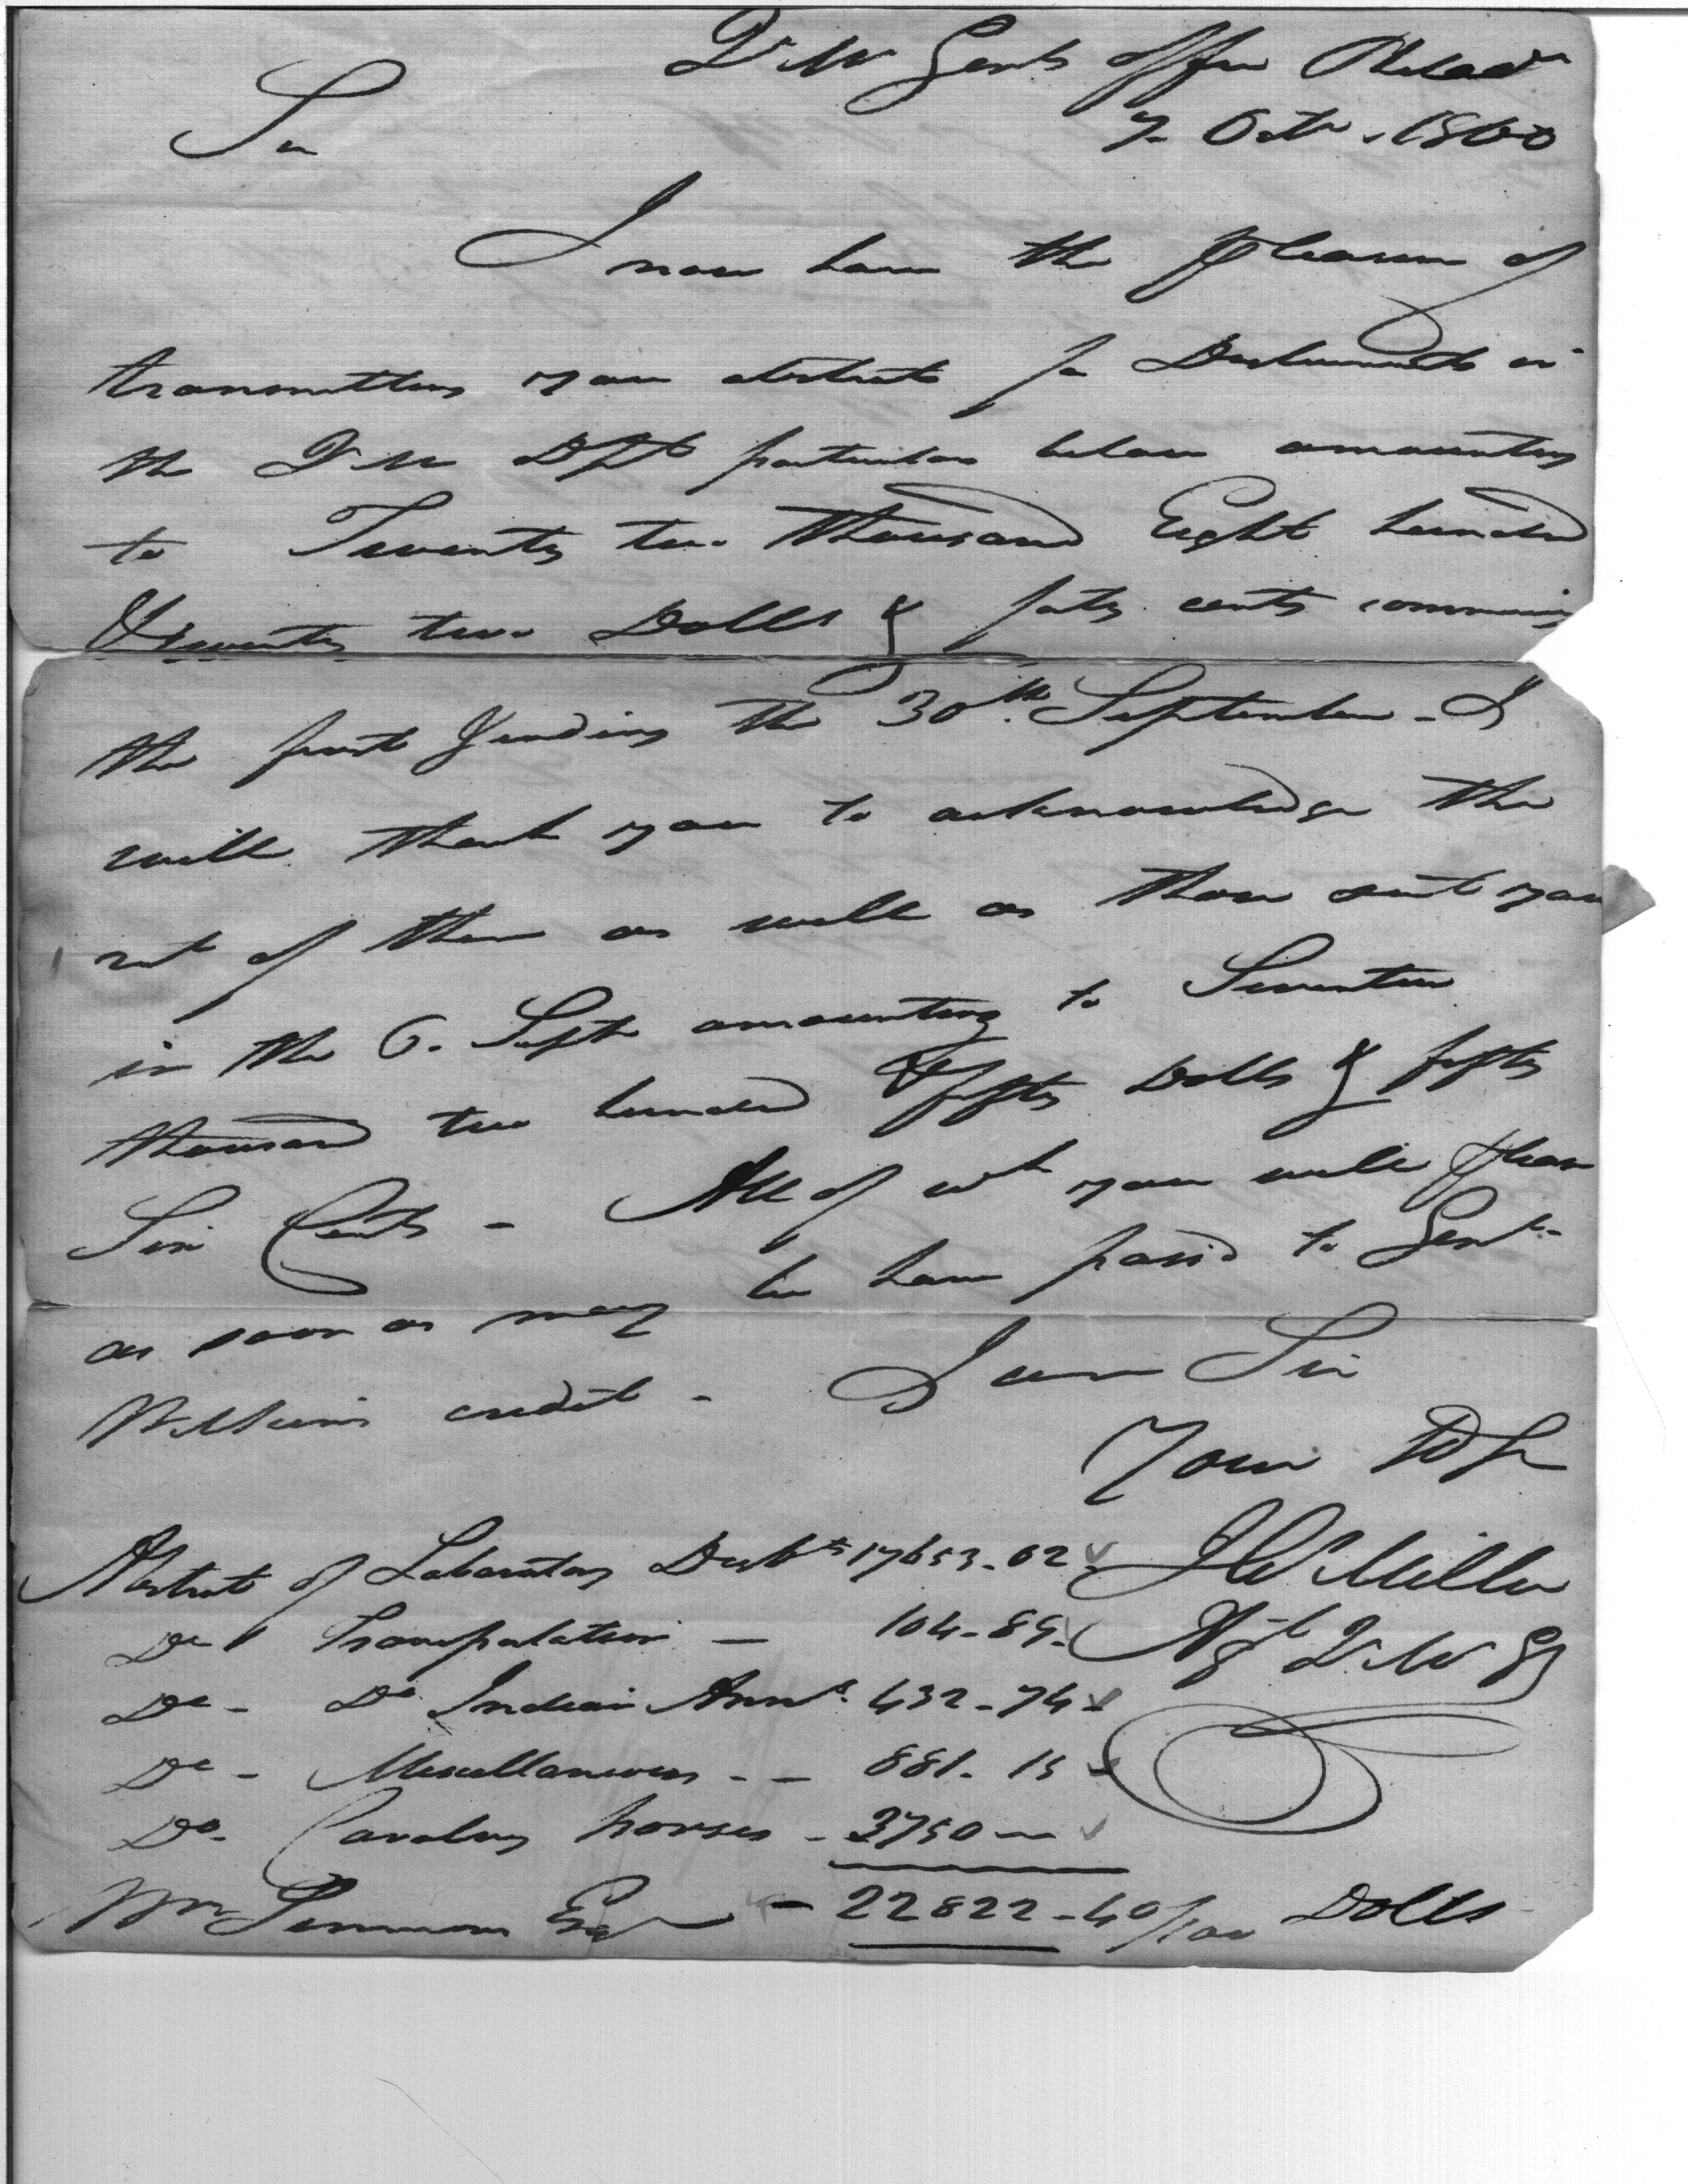 Q M Genls office Philada
7 Octr. 1800
Sir
I now have the pleasure of
transmitting you abstracts for Disbursments in
the Q M Dpt particulars below amounting
to Twenty two thousand Eight hundred
& twenty two Dolls & forty cents commencing
the first & ending the 30th September - I
will thank you to acknowledge the
rect of them as well as those sent you
in the 6. Septr amounting to Seventeen
thousand two hundred & fifty Dolls & fifty
Six Cents - All of wh you will please
as soon as may be have pass'd to Genl
Wilkins credit - I am Sir
Your
Abstract of Laboratory Disbts 17653-62
J W Miller
Do Transportation - 104-89
Agt Q. M G
Do - Do Indian Annts. 432-74
Do - Miscellaneous - - 881. 15
Do. Cavalry horses - 3750 -
Wm Simmons Esqr - 22822-40/100 Dolls